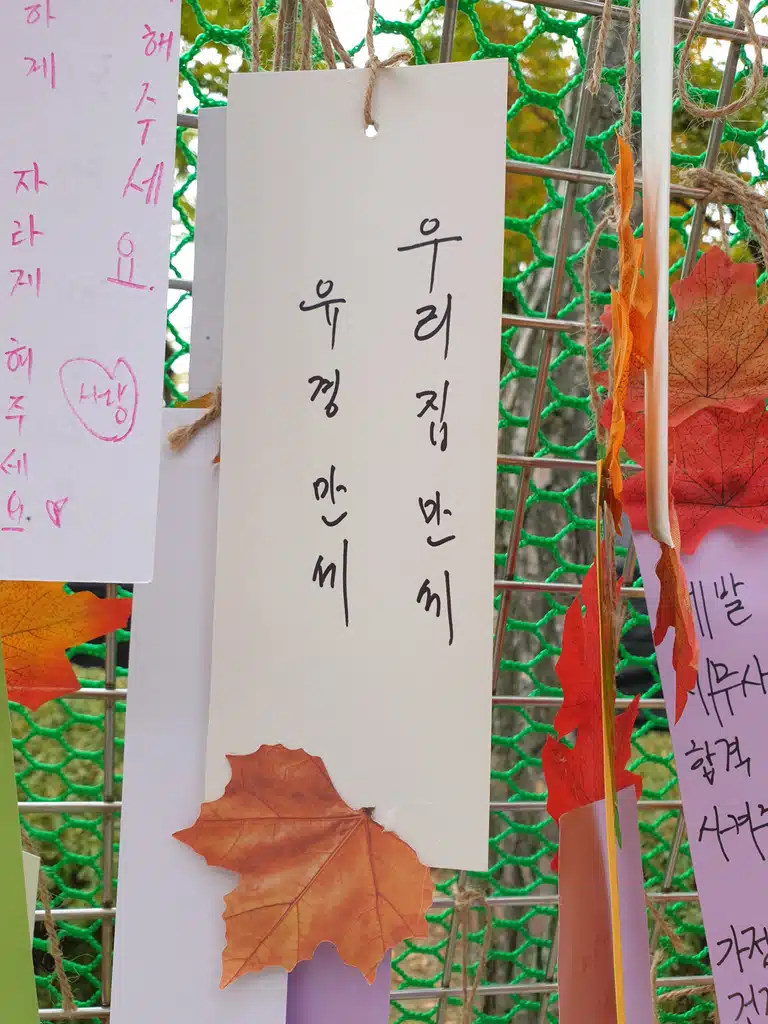 해주세요.
하게 자라게 해주세요.♡
사랑
우리집 만세
유경 만세
제발
세무사
합격
시켜주
가정
건